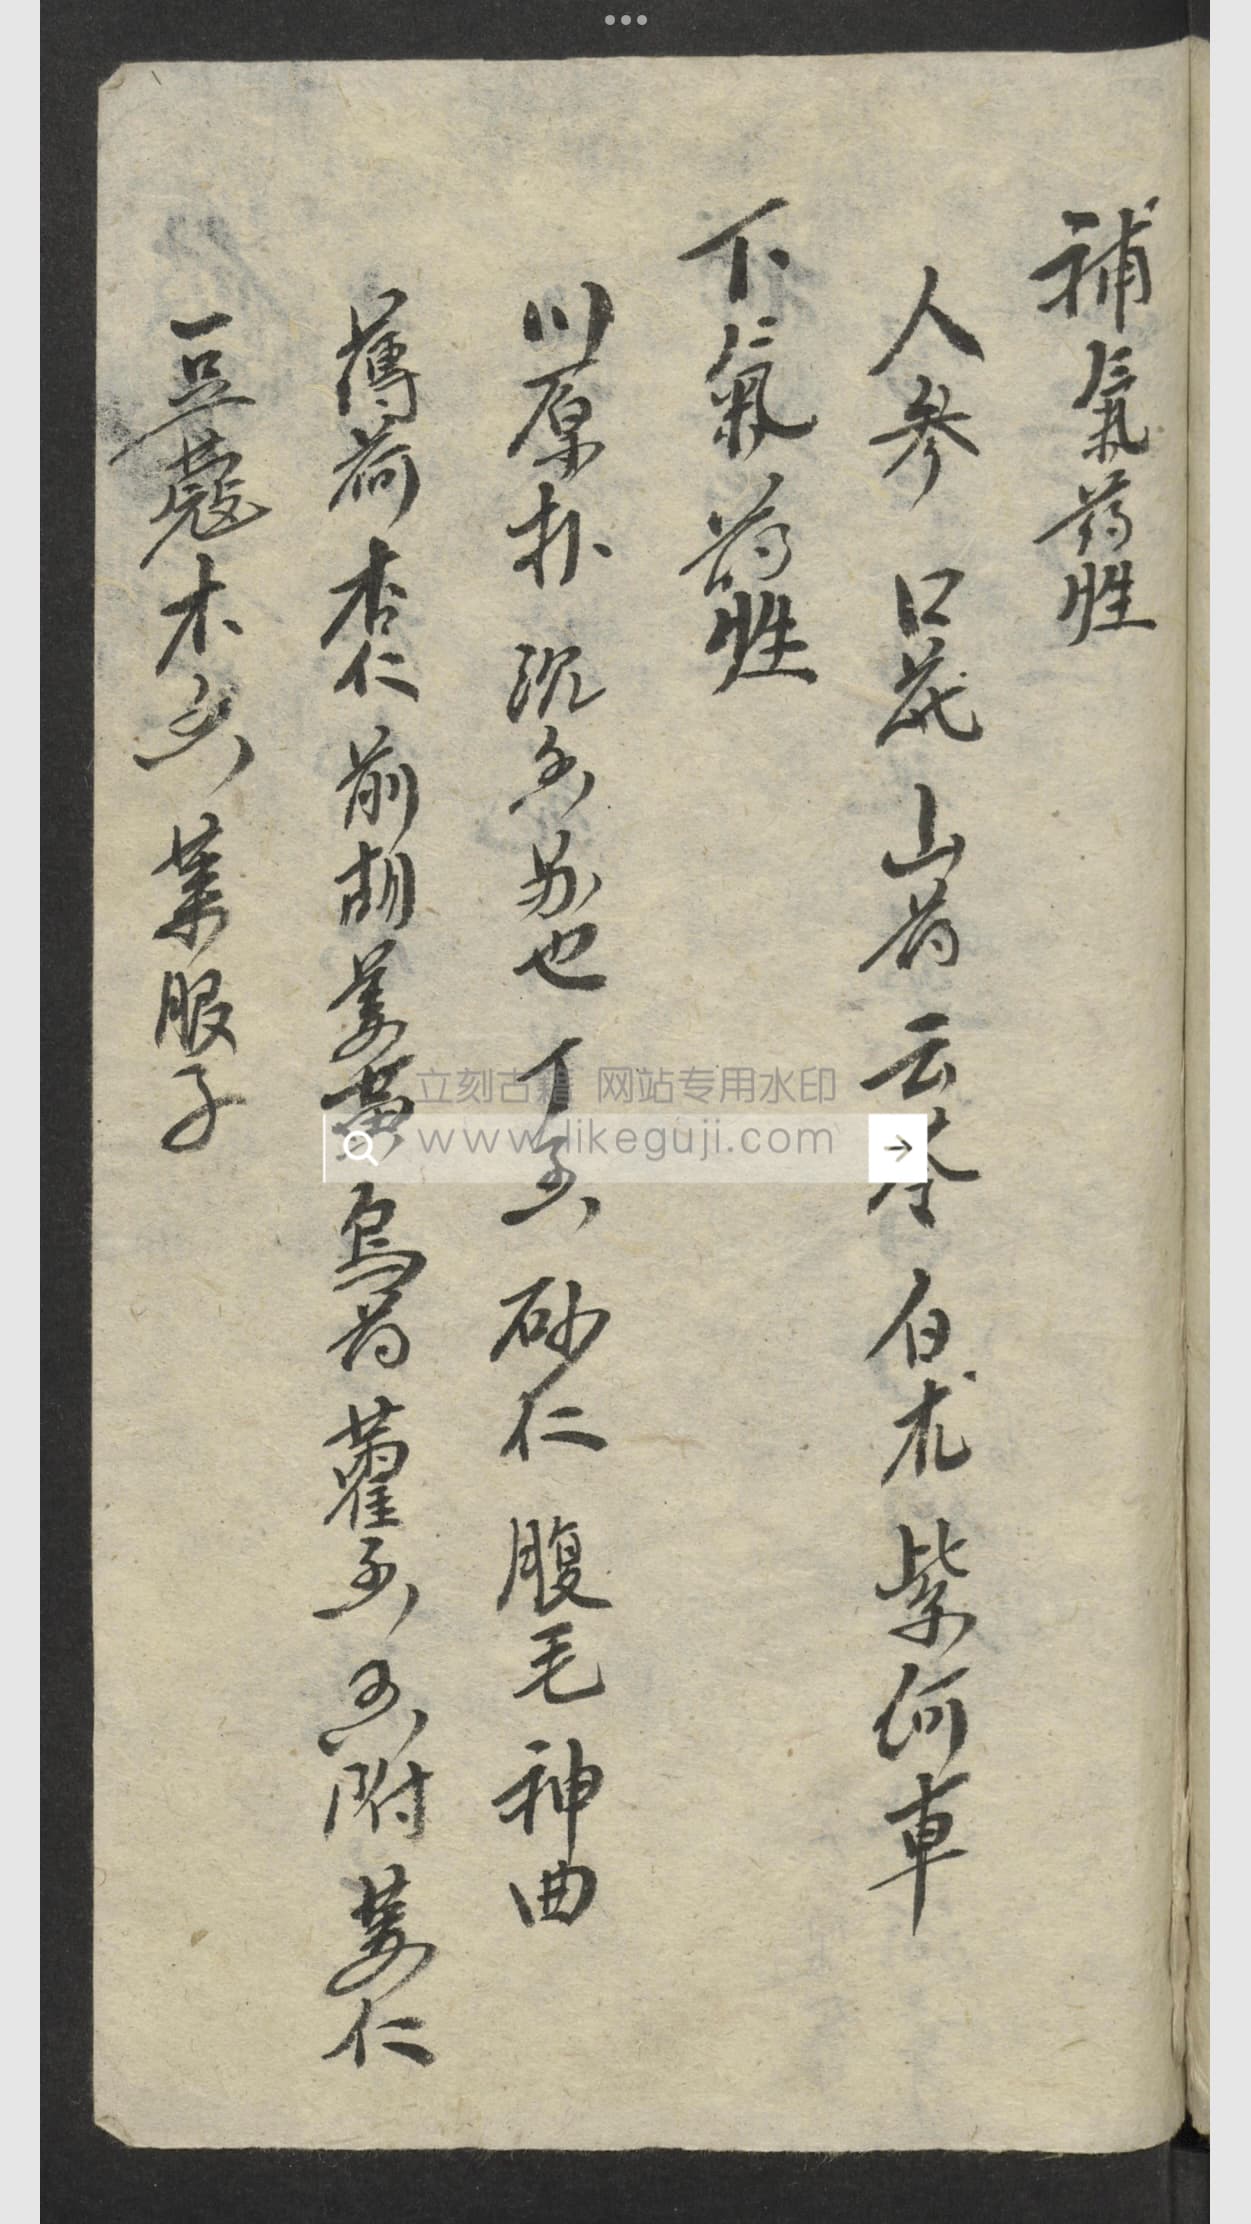 補氣药性
人參 口芪 山药 云苓 白朮 紫何車
下氣药性
川厚朴 沉香 苏也 丁香 砂仁 腹毛 神曲
薄荷 杏仁 前胡 姜黄 烏药 藿香 香附 蒌仁
豆蔻 木香 莱服子
立刻古籍 网站专用水印
www.likeguji.com